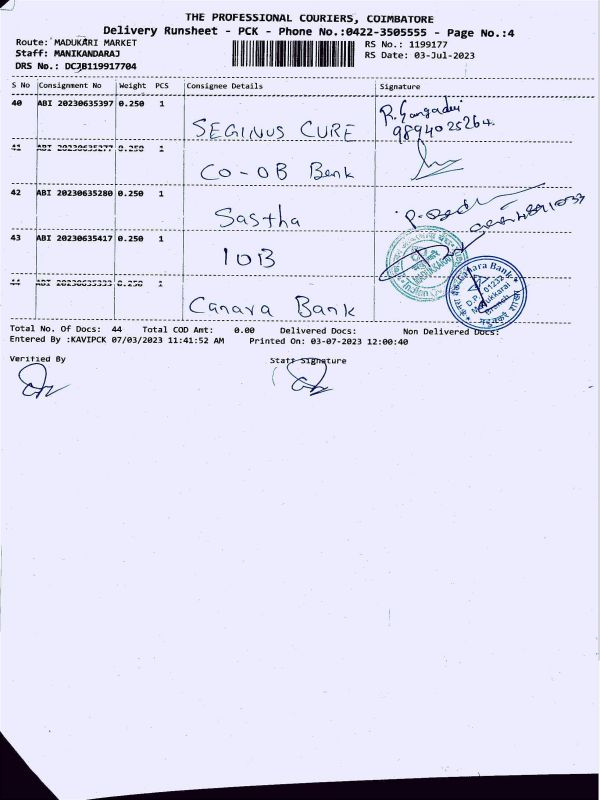 THE PROFESSIONAL COURIERS, COIMBATORE
Delivery Runsheet - PCK - Phone No.:0422-3505555 - Page No.:4
Route: MADUKARI MARKET RS No.: 1199177
Staff: MANIKANDARAJ RS Date: 03-Jul-2023
DRS No.: DCJB119917704
S No Consignment No Weight PCS Consignee Details Signature
40 ABI 20230635397 0.250 1 SEGINUS CURE R. Gangadevi
9894025264.
41 ABI 20230635277 0.250 1 CO-OB Bank
42 ABI 20230635280 0.250 1 Sastha
43 ABI 20230635417 0.250 1 IOB
44 ABI 1 Canara Bank
Canara Bank
D.P. 01232
Madukkarai
Branch
Total No. Of Docs: 44 Total COD Amt: 0.00 Delivered Docs: Non Delivered Docs:
Entered By :KAVIPCK 07/03/2023 11:41:52 AM Printed On: 03-07-2023 12:00:40
Verified By Staff Signature